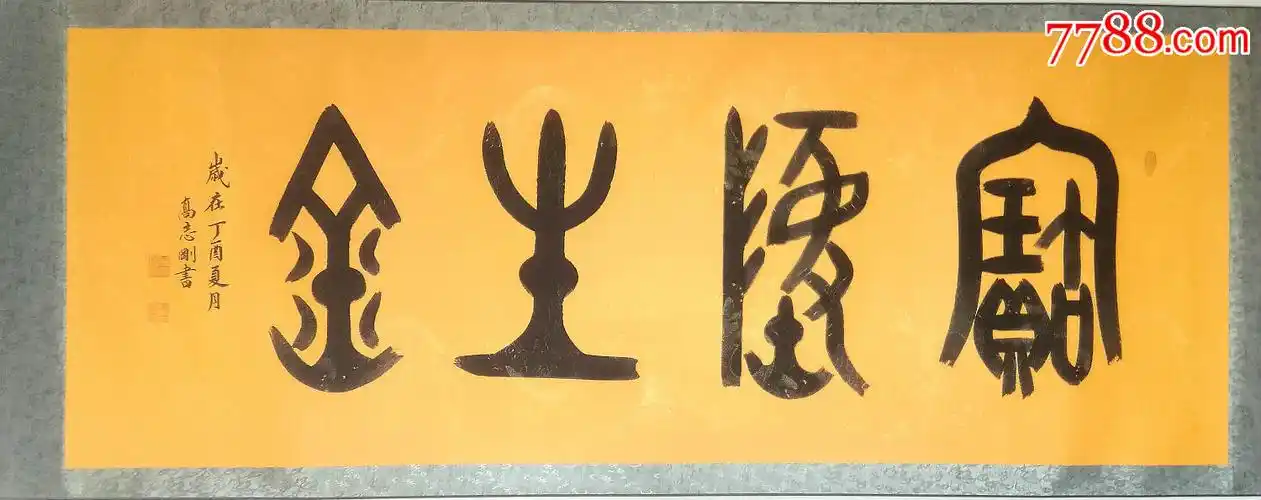 寶地生金
歲在丁酉夏月
高志剛書
7788.com